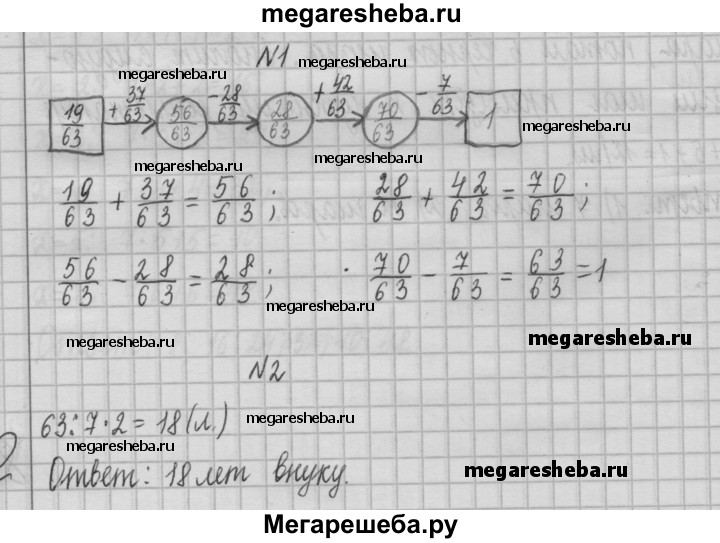 megaresheba.ru
N1
megaresheba.ru megaresheba.ru
19/63 + 37/63 56/63 - 28/63 28/63 + 42/63 70/63 - 7/63 1
megaresheba.ru
megaresheba.ru megaresheba.ru
19/63 + 37/63 = 56/63; 28/63 + 42/63 = 70/63;
56/63 - 28/63 = 28/63; 70/63 - 7/63 = 63/63 = 1
megaresheba.ru
megaresheba.ru megaresheba.ru megaresheba.ru
N2
63:7·2 = 18 (л.) megaresheba.ru
megaresheba.ru
Ответ: 18 лет внуку. megaresheba.ru
Мегарешеба.ру